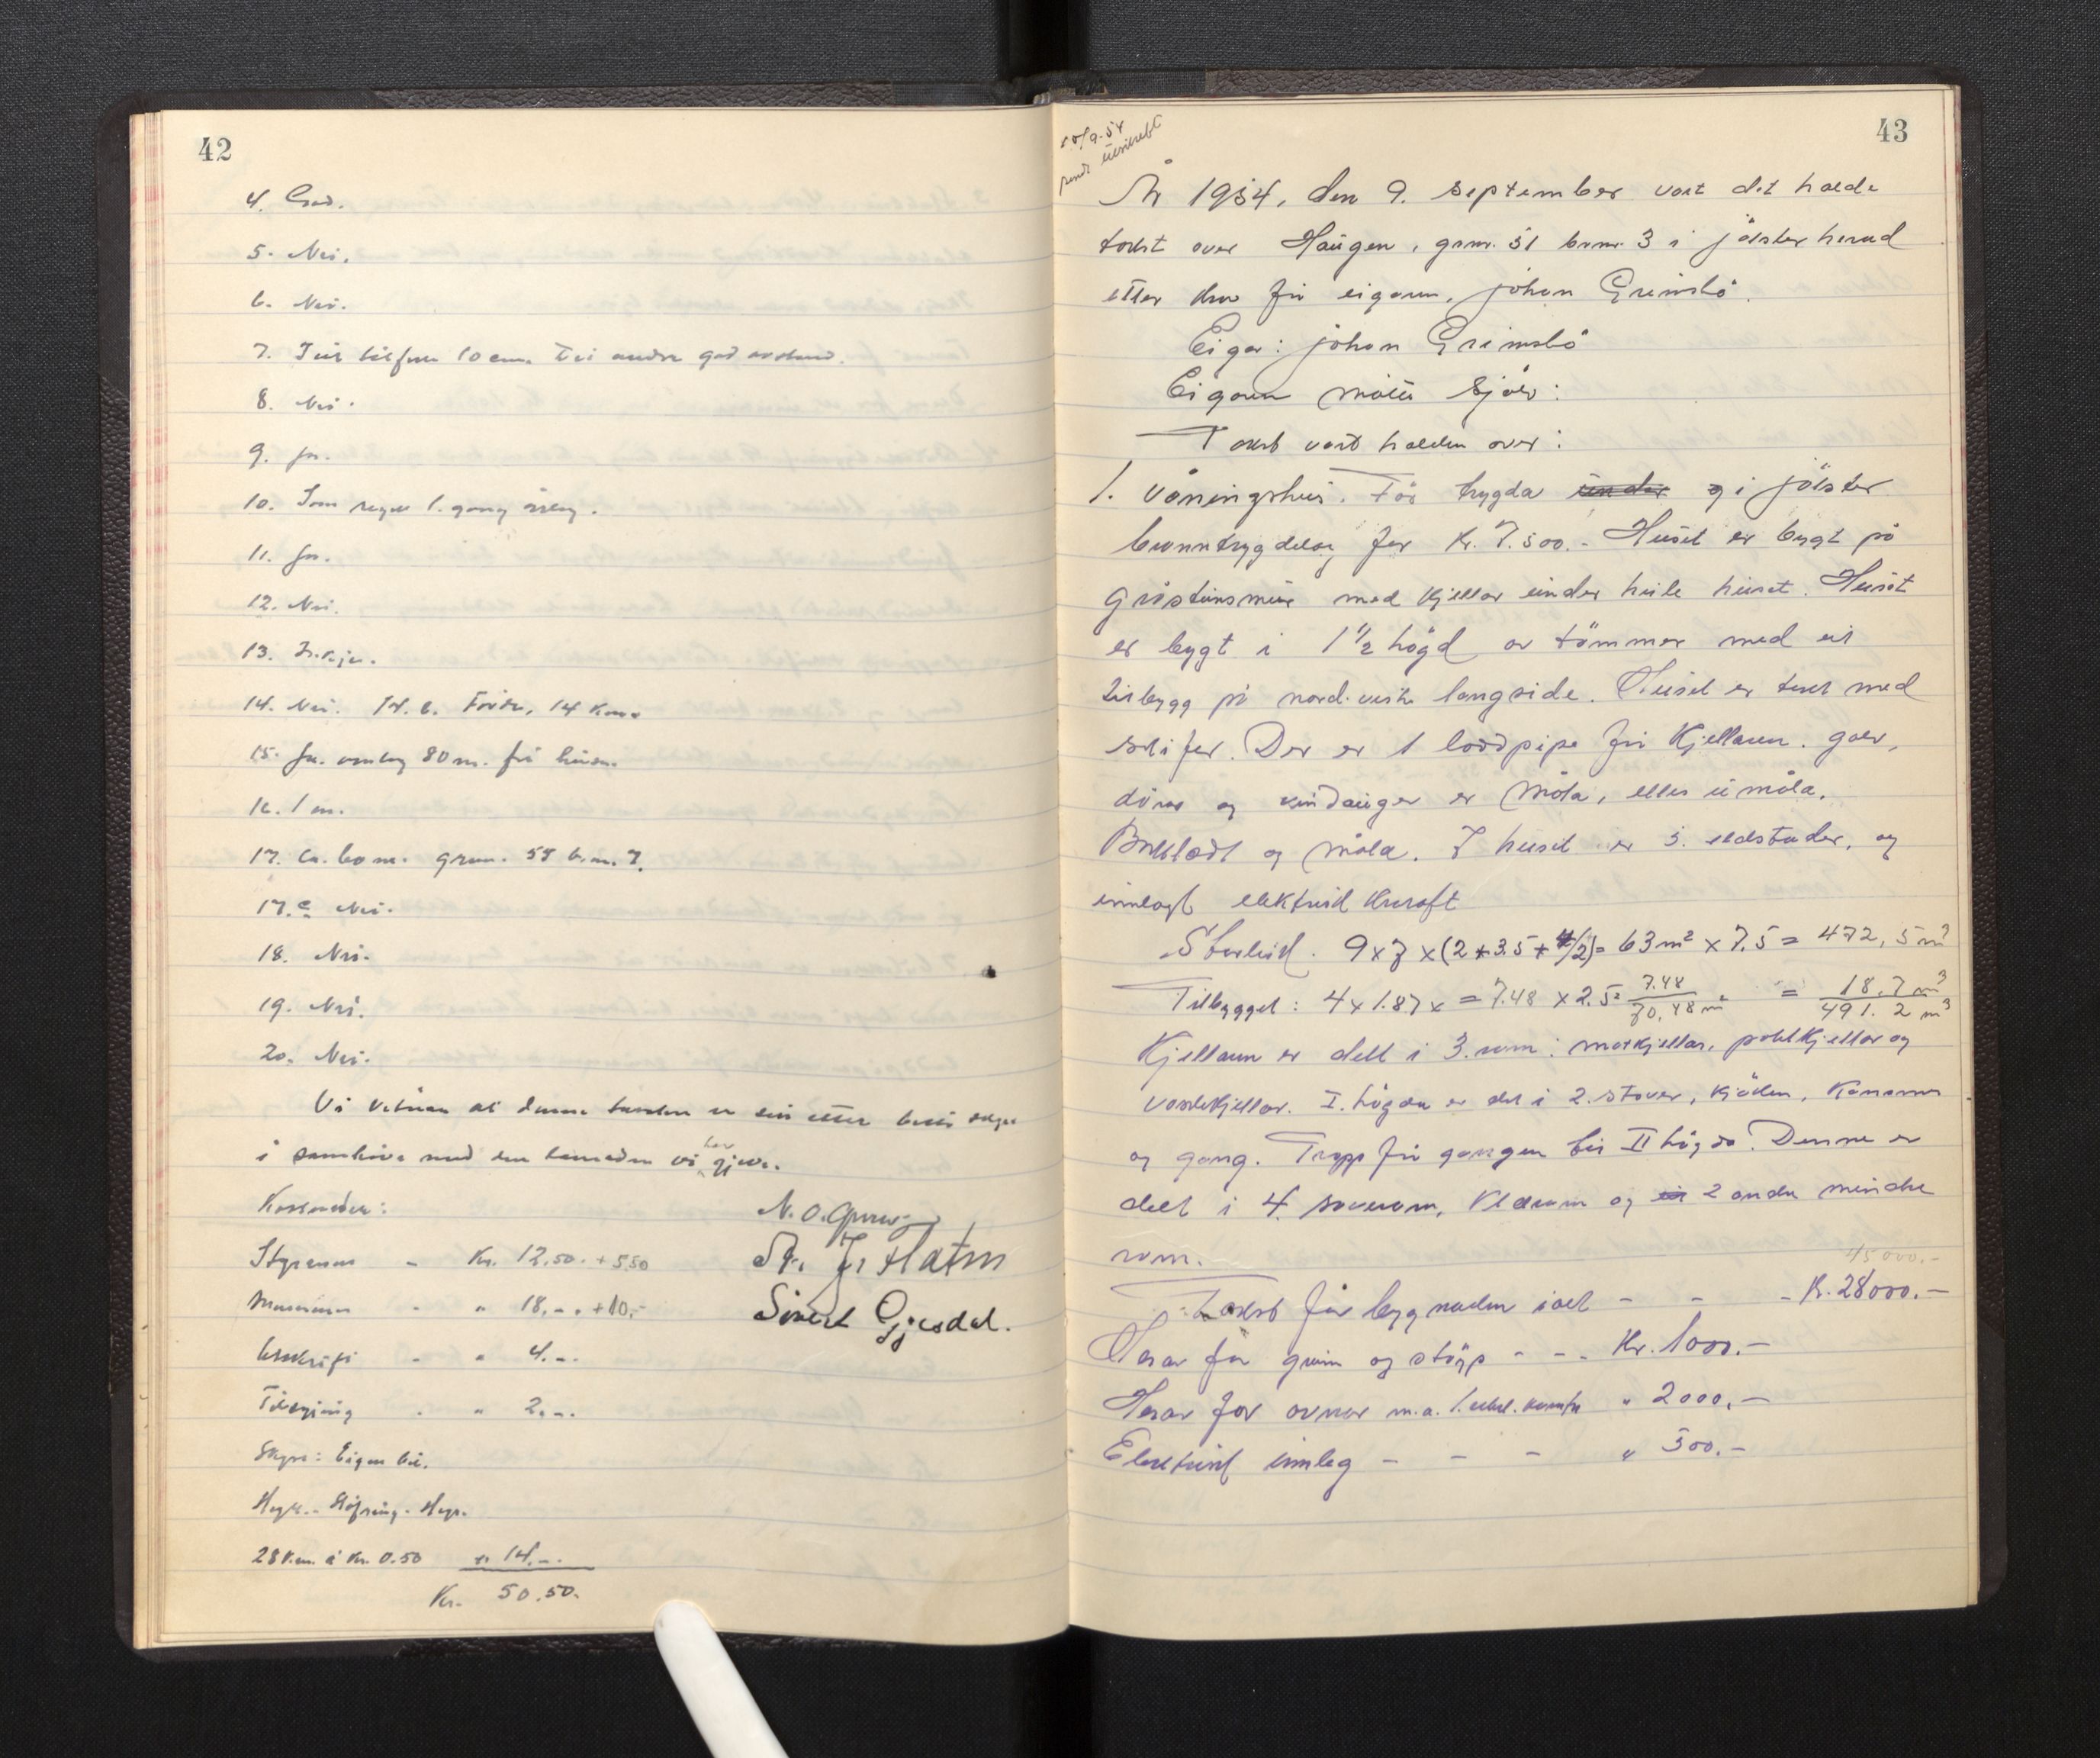 42
4. God.
5. Nei.
6. Nei.
7. I eit tilfelle 10 cm. Dei andre god avstand.
8. Nei.
9. Ja.
10. Som regel 1. gong årleg.
11. Ja.
12. Nei.
13. Ikkje.
14. Nei. H.l. Förde, 14 km.
15. Ja. omlag 80 m. frå husa.
16. 1 m.
17. Ca. 60 m. grnr. 55 b.nr. 7.
17.a Nei.
18. Nei.
19. Nei.
20. Nei.
Vi vitnar at denne taksten er sett etter beste skjøn
i samhøve med den kunnskapen vi har gjeve.
Kostnader:
Styraren - Kr. 12.50. + 5.50
Mennene - " 18.-. +10.-
Utskrift - " 4.-.
Tilsyning - " 2.-.
Skyss: Eigen bil.
28 km. à kr. 0.50 " 14.-.
Kr. 50.50.
Sivert Gjesdal.
43
År 1954, den 9. september vart det halde
takst over Haugen, grnr. 51 brnr. 3 i Jölster herad
etter krav frå eigaren, Johan Grimsbö.
Eigar: Johan Grimsbö
Eigaren møtte sjølv:
Takst vart halden over:
1. Våningshus. Før trygda under og i Jölster
branntrygdelag for kr. 7.500.- Huset er bygt på
gråsteinsmur med kjellar under heile huset. Huset
er bygt i 1 1/2 högd av tömmer med eit
tilbygg på nord-vestre langside. Huset er tekt med
skifer. Der er 1 loddpipe frå kjellaren. golv,
dører og vindauger er måla, elles umåla.
Bordklædt og måla. I huset er 5. eldstader, og
innlagt elektrisk kraft
Storleik. 9 x 7 x (2 + 3.5 + 4/2) = 63 m² x 7.5 = 472,5 m³
Tilbygget: 4 x 1.87 x = 7.48 x 2.5 = 7.48 = 18.7 m³
70,48 m² 491.2 m³
Kjellaren er delt i 3. rom: matkjellar, potetkjellar og
vaskekjellar. I. högda er delt i 2. stover, kjöken, kammers
og gang. Trapp frå gangen til II högda. Denne er
delt i 4. soverom, klærom og eit 2 andre mindre
rom.
45000.-
Takst for bygnaden i alt - - - Kr. 28000.-
Herav for grunn og støyp - - - Kr. 1000.-
Herav for ovnar m.a. 1. elek. komfyr " 2000.-
Elektrisk innlegg - - - " 500.-